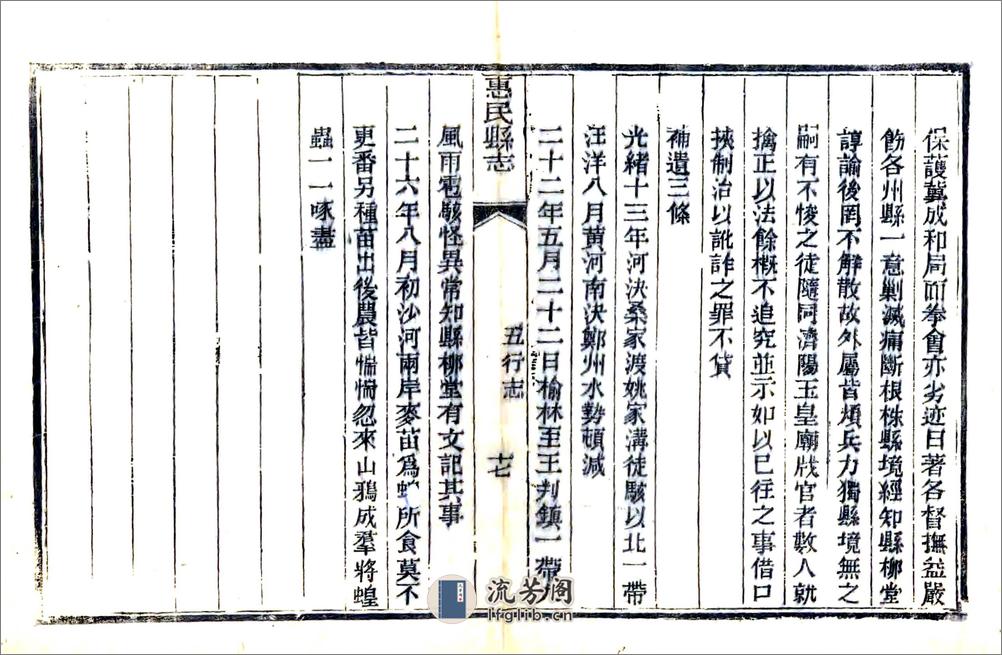 保護冀成和局而拳會亦劣迹日著各督撫益嚴
飭各州縣一意剿滅痛斷根株縣境經知縣柳堂
諄諭後罔不解散故外屬皆煩兵力獨縣境無之
嗣有不悛之徒隨同濟陽玉皇廟戕官者數人就
擒正以法餘概不追究並示如以已往之事借口
挾制治以訛詐之罪不貸
補遺三條
光緒十三年河決桑家渡姚家溝徒駭以北一帶
汪洋八月黃河南決鄭州水勢頓減
二十二年五月二十二日榆林至王判鎮一帶
惠民縣志
五行志
十七
風雨雹駭怪異常知縣柳堂有文記其事
二十六年八月初沙河兩岸麥苗爲蝗所食莫不
更番另種苗出後農皆惴惴忽來山鴉成羣將蝗
蟲一一啄盡
流芳閣
lfglib.cn